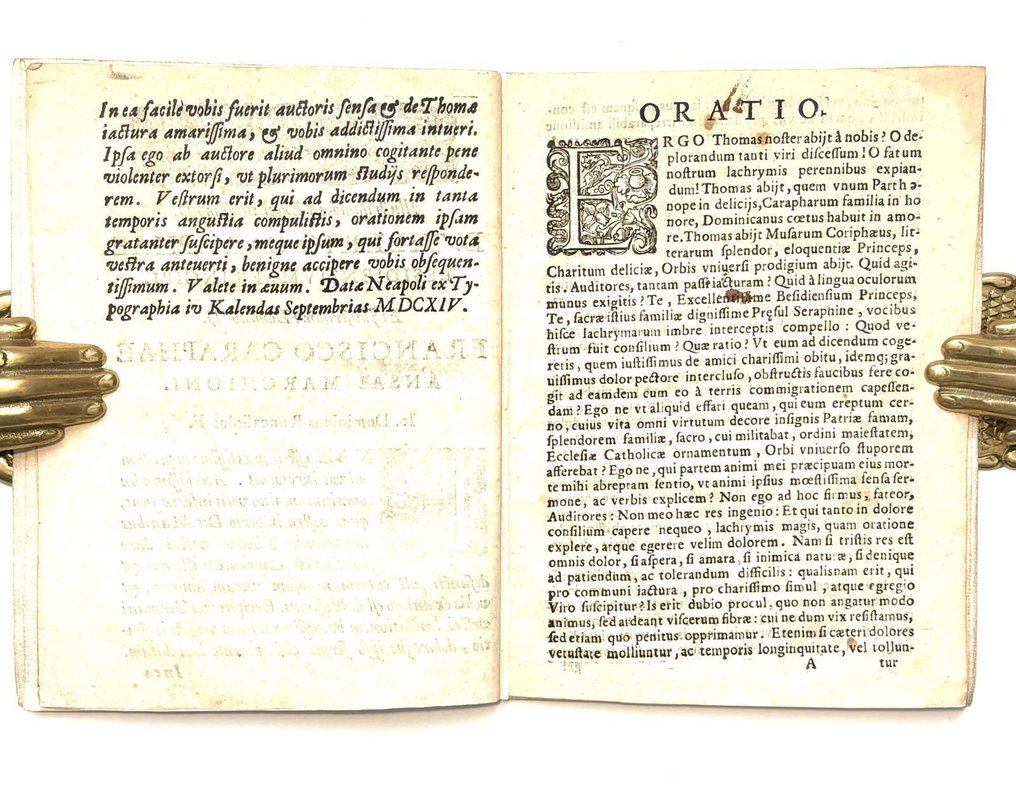 In ea facile vobis fuerit auctoris sensa & de Thomæ
iactura amarissima, & vobis addictissima intueri.
Ipsa ego ab auctore aliud omnino cogitante pene
violenter extorsi, vt plurimorum studijs responde-
rem. Vestrum erit, qui ad dicendum in tanta
temporis angustia compulistis, orationem ipsam
gratanter suscipere, meque ipsum, qui fortasse vota
vestra anteuerti, benigne accipere vobis obsequen-
tissimum. Valete in æuum. Datæ Neapoli ex Ty-
pographia iv Kalendas Septembrias MDCXIV.
ORATIO.
ERGO Thomas noster abijt à nobis? O de-
plorandum tanti viri discessum! O fatum
nostrum lachrymis perennibus expian-
dum! Thomas abijt, quem vnum Partheno-
nope in delicijs, Carapharum familia in ho
nore, Dominicanus cœtus habuit in amo-
re. Thomas abijt Musarum Coriphæus, lit-
terarum splendor, eloquentiæ Princeps,
Charitum deliciæ, Orbis vniuersi prodigium abijt. Quid agi-
tis. Auditores, tantam passi iacturam? Quid à lingua oculorum
munus exigitis? Te, Excellentissime Besidiensium Princeps,
Te, sacræ istius familiæ dignissime Pręsul Seraphine, vocibus
hisce lachrymarum imbre interceptis compello: Quod ve-
strum fuit consilium? Quæ ratio? Vt eum ad dicendum coge-
retis, quem iustissimus de amici charissimi obitu, idemq; gra-
uissimus dolor pectore intercluso, obstructis faucibus fere co-
git ad eamdem cum eo à terris commigrationem capessen-
dam? Ego ne vt aliquid effari queam, qui eum ereptum cer-
no, cuius vita omni virtutum decore insignis Patriæ famam,
splendorem familiæ, sacro, cui militabat, ordini maiestatem,
Ecclesiæ Catholicæ ornamentum, Orbi vniuerso stuporem
afferebat? Ego ne, qui partem animi mei præcipuam eius mor-
te mihi abreptam sentio, vt animi ipsius mœstissima sensa ser-
mone, ac verbis explicem? Non ego ad hoc firmus, fateor,
Auditores: Non meo hæc res ingenio: Et qui tanto in dolore
consilium capere nequeo, lachrymis magis, quam oratione
explere, atque egerere velim dolorem. Nam si tristis res est
omnis dolor, si aspera, si amara, si inimica naturæ, si denique
ad patiendum, ac tolerandum difficilis: qualisnam erit, qui
pro communi iactura, pro charissimo simul, atque egregio
Viro suscipitur? Is erit dubio procul, quo non angatur modo
animus, sed ardeant viscerum fibræ: cui ne dum vix resistamus,
sed etiam quo penitus opprimamur. Etenim si cæteri dolores
vetustate molliuntur, ac temporis longinquitate, vel tollun-
A tur